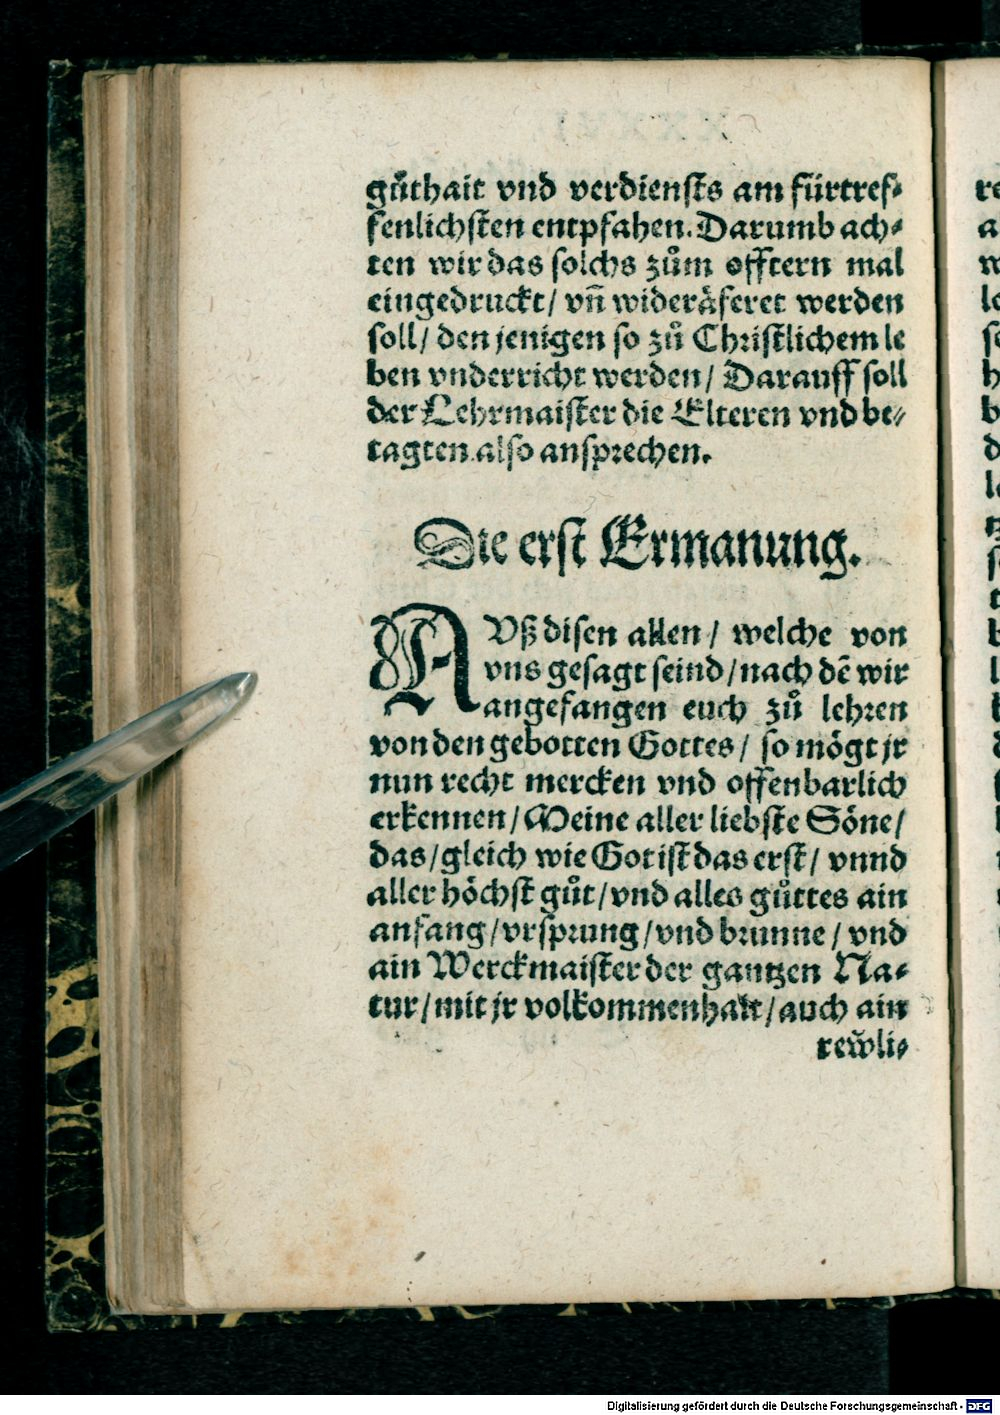 guͤthait vnd verdiensts am fürtref⸗
fenlichsten entpfahen. Darumb ach⸗
ten wir das solchs zuͦm offtern mal
eingedruckt / vn̄ wideräferet werden
soll / den jenigen so zuͦ Christlichem le
ben vnderricht werden / Darauff soll
der Lehrmaister die Elteren vnd be⸗
tagten also ansprechen.
Die erst Ermanung.
AVß disen allen / welche von
vns gesagt seind / nach dē wir
angefangen euch zuͦ lehren
von den gebotten Gottes / so mögt jr
nun recht mercken vnd offenbarlich
erkennen / Meine aller liebste Söne /
das / gleich wie Got ist das erst / vnnd
aller höchst guͦt / vnd alles guͦttes ain
anfang / vrsprung / vnd brunne / vnd
ain Werckmaister der gantzen Na⸗
tur / mit jr volkommenhait / auch ain
rew̆li⸗
Digitalisierung gefördert durch die Deutsche Forschungsgemeinschaft - DFG